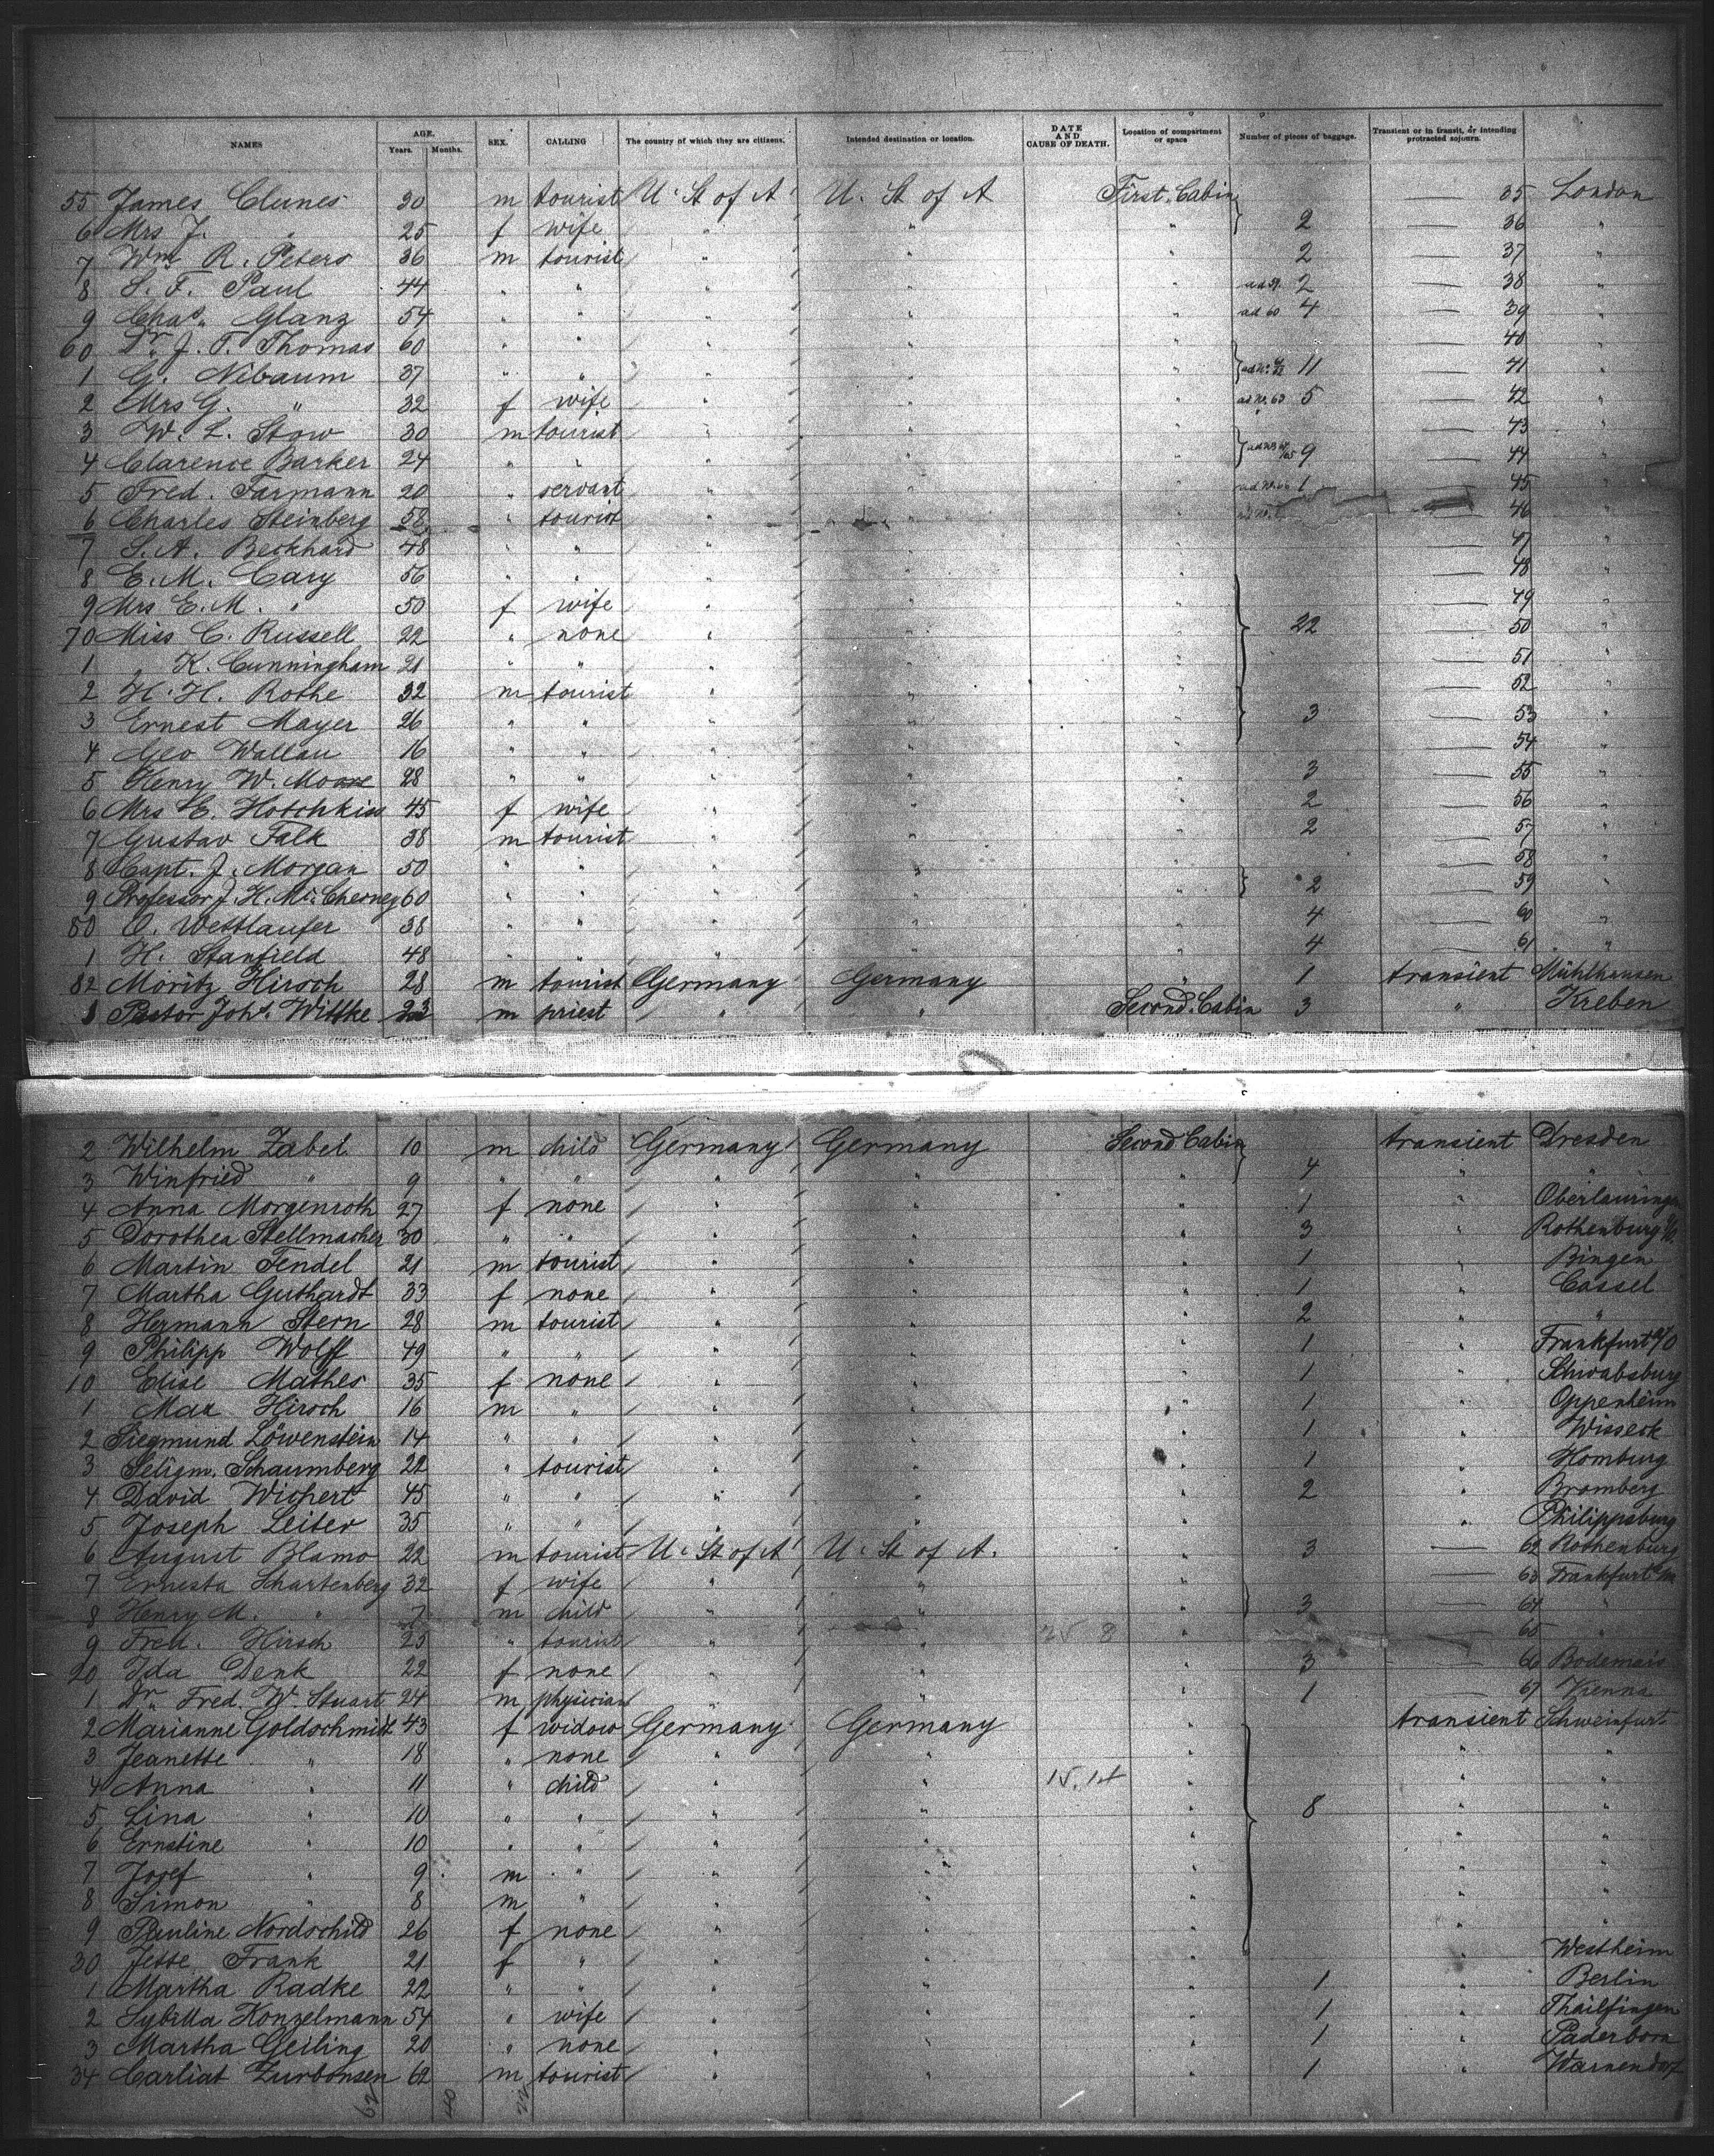 NAMES AGE. Years. Months. SEX. CALLING The country of which they are citizens. Intended destination or location. DATE AND CAUSE OF DEATH. Location of compartment or space Number of pieces of baggage. Transient or in transit, or intending protracted sojourn.
55 James Clunes 30 m tourist U. St of A U. St of A First Cabin — 35 London
6 Mrs J. " 25 f wife " " " 2 — 36 "
7 Wm R. Peters 36 m tourist " " " 2 — 37 "
8 S. F. Paul 44 " " " " " ad 59. 2 — 38 "
9 Chas. Glanz 54 " " " " " ad 60 4 — 39 "
60 Dr. J. T. Thomas 60 " " " " " — 40 "
1 G. Nibaum 37 " " " " " 11 — 41 "
2 Mrs G. " 32 f wife " " " ad No. 63 5 — 42 "
3 W. L. Stow 30 m tourist " " " — 43 "
4 Clarence Barker 24 " " " " " 9 — 44 "
5 Fred. Farmann 20 " servant " " " 1 — 45 "
6 Charles Steinberg 58 " tourist " " " — 46 "
7 S. A. Beckhard 48 " " " " " — 47 "
8 E. M. Cary 56 " " " " " — 48 "
9 Mrs E. M. " 50 f wife " " " — 49 "
70 Miss C. Russell 22 " none " " " 22 — 50 "
1 " K. Cunningham 21 " " " " " — 51 "
2 H. H. Rothe 32 m tourist " " " — 52 "
3 Ernest Mayer 26 " " " " " 3 — 53 "
4 Geo Wallau 16 " " " " " — 54 "
5 Henry W. Moore 28 " " " " " 3 — 55 "
6 Mrs E. Hotchkiss 45 f wife " " " 2 — 56 "
7 Gustav Falk 38 m tourist " " " 2 — 57 "
8 Capt. J. Morgan 50 " " " " " — 58 "
9 Professor J. H. Mc. Cherney 60 " " " " " 2 — 59 "
80 O. Wettlaufer 38 " " " " " 4 — 60 "
1 H. Stanfield 48 " " " " " 4 — 61 "
82 Moritz Hirsch 28 m tourist Germany Germany " 1 transient Mühlhausen
1 Pastor Johs. Wittke 23 m priest " " Second Cabin 3 " Kreben
2 Wilhelm Zabel 10 m child Germany Germany Second Cabin transient Dresden
3 Winfried " 9 " " " " " 4 " "
4 Anna Morgenroth 27 f none " " " 1 " Oberlauringen
5 Dorothea Stellmacher 30 " " " " " 3 " Rothenburg
6 Martin Fendel 21 m tourist " " " 1 " Bingen
7 Martha Guthardt 33 f none " " " 1 " Cassel
8 Hermann Stern 28 m tourist " " " 2 " "
9 Philipp Wolff 49 " " " " " 1 " Frankfurt a/O
10 Elise Mathes 35 f none " " " 1 " Schwabsburg
1 Max Hirsch 16 m " " " " 1 " Oppenheim
2 Siegmund Löwenstein 14 " " " " " 1 " Wisseck
3 Seligm. Schaumberg 22 " tourist " " " 1 " Homburg
4 David Wichert 45 " " " " " 2 " Bromberg
5 Joseph Leiter 35 " " " " " " Philippsburg
6 August Blamo 22 m tourist U. St of A U. St of A. " 3 — 62 Rothenburg
7 Ernesta Schartenberg 32 f wife " " " — 63 Frankfurt
8 Henry M. " 7 m child " " " 3 — 64 "
9 Fred. Hirsch 25 " tourist " " " — 65 "
20 Ida Denk 22 f none " " " 3 — 66 Bodemais
1 Dr. Fred. W. Stuart 24 m physician " " " 1 — 67 Vienna
2 Marianne Goldschmidt 43 f widow Germany Germany " transient Schweinfurt
3 Jeanette " 18 " none " " " " "
4 Anna " 11 " child " " " " "
5 Lina " 10 " " " " " 8 " "
6 Ernstine " 10 " " " " " " "
7 Josef " 9 m " " " " " "
8 Simon " 8 m " " " " " "
9 Pauline Nordschild 26 f none " " " " "
30 Jette Frank 21 f " " " " " Westheim
1 Martha Radke 22 " " " " " 1 " Berlin
2 Sybilla Konzelmann 54 " wife " " " 1 " Thailfingen
3 Martha Geiling 20 " none " " " 1 " Paderborn
34 Carliat Zurbonsen 62 m tourist " " " 1 " Warnendorf